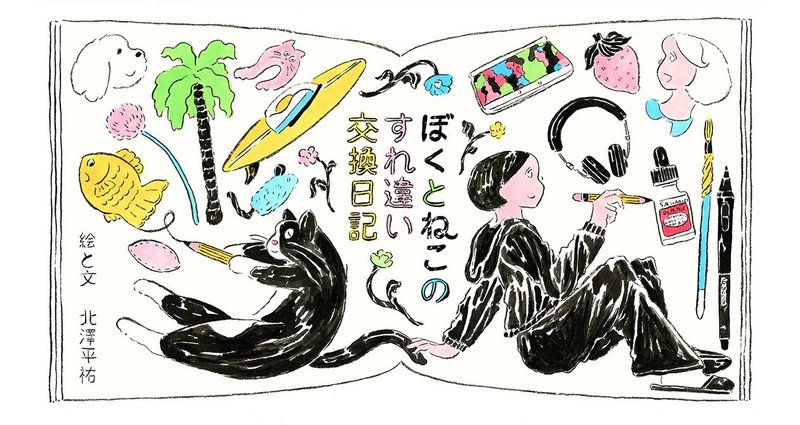 ぼくとねこの
すれ違い
交換日記
絵と文　北澤平祐